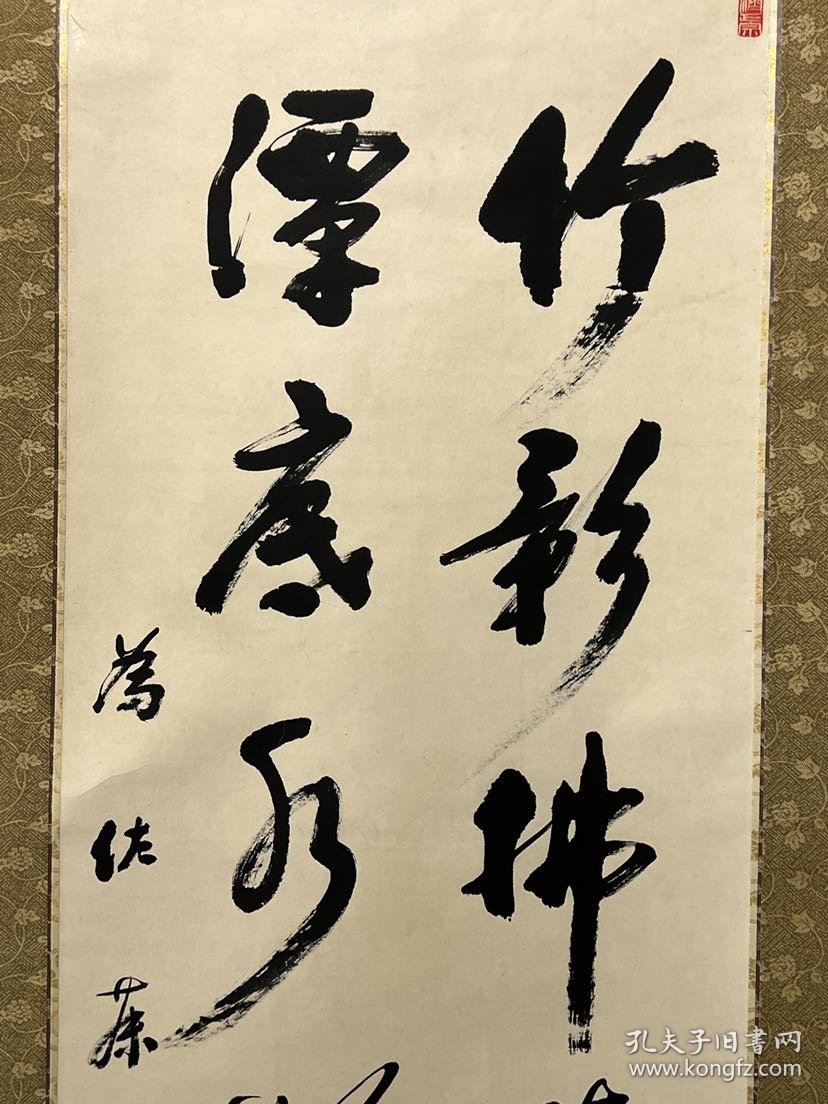 竹影拂
潭底水
為佐藤
孔夫子旧书网
www.kongfz.com